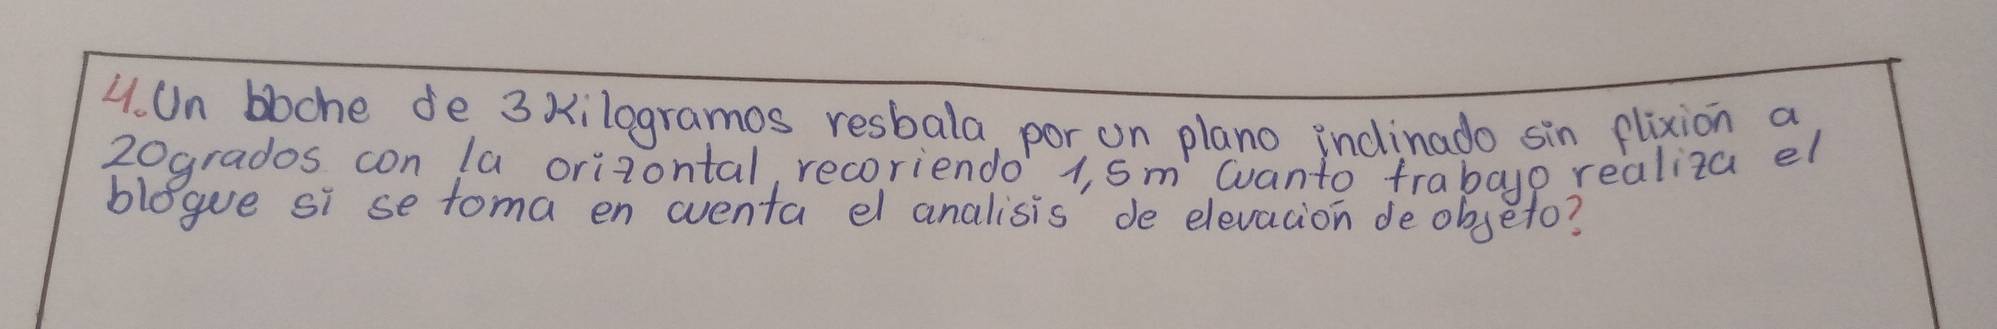 4. Un bloche de 3 Kilogramos resbala por un plano inclinado sin flixión a
20grados con la orizontal, recoriendo 1,5m cuanto trabajo realiza el
bloque si se toma en cuenta el analisis de elevación de objeto?